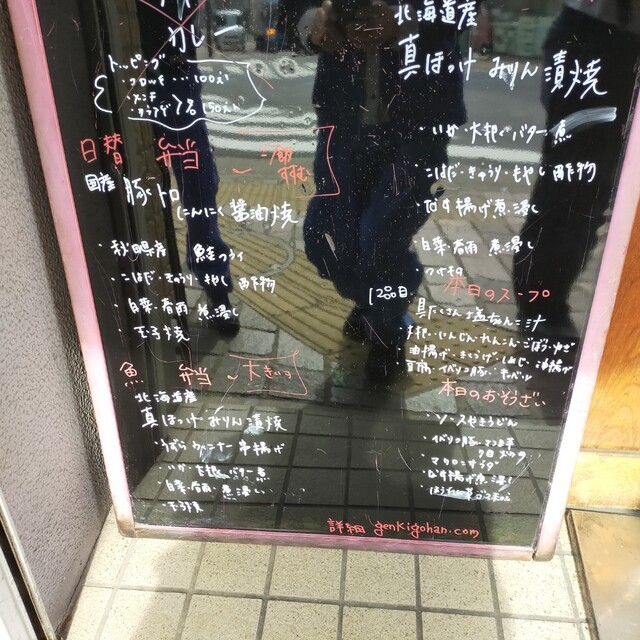 カレー
トッピング
コロッケ…100えん
メンチ
日替 弁当
ご飯
すすむ
国産 豚トロ
にんにく醤油焼
・秋田県産 鮭フライ
・こはだ・きゅうり・もやし 酢物
・白菜・春雨 煮浸し
・玉子焼
魚 弁当 大きいヨ
北海道産
真ほっけみりん漬焼
串揚げ
・いか・大根 バター煮
・白菜・春雨 煮浸し
・玉子焼
北海道産
真ほっけみりん漬焼
・いか・大根 バター煮
・こはだ・きゅうり・もやし 酢物
・なす揚げ煮浸し
・白菜・春雨 煮浸し
12品目 本日のスープ
具だくさん 塩ちゃんこ汁
大根・にんじん・れんこん・ごぼう・ねぎ
油揚げ・きくらげ
豆腐・イベリコ豚・キャベツ
本日のおそうざい
・ソースやきうどん
・イベリコ豚
・マカロニサラダ
・なす揚げ煮浸し
詳細 genkigohan.com